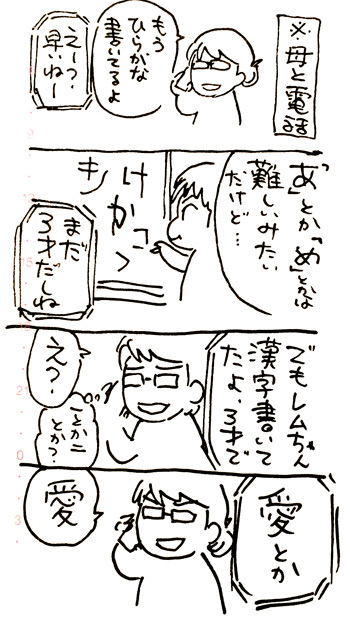 ※母と電話
もう
ひらがな
書いてるよ
えー?
早いねー
「あ」とか「め」とかは
難しいみたい
だけど…
け
か
こ
く
き
まだ
3才だしね
でもレムちゃん
漢字書いて
たよ、3才で
え?
一とか二
とか?
愛とか
愛